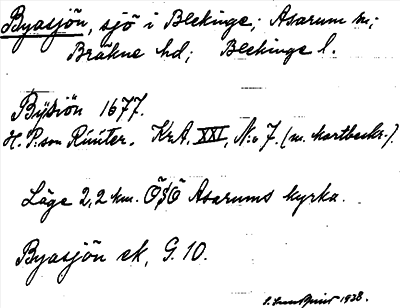 Byasjön, sjö i Blekinge; Asarum sn;
Bräkne hd; Blekinge l.
Byasiön 1677.
H. P:son Ruuter. KrA. XXI, N:o 7. (m. kartbeskr.).
Läge 2,2 km. ÖSÖ Asarums kyrka.
Byasjön ek, G. 10.
1938.